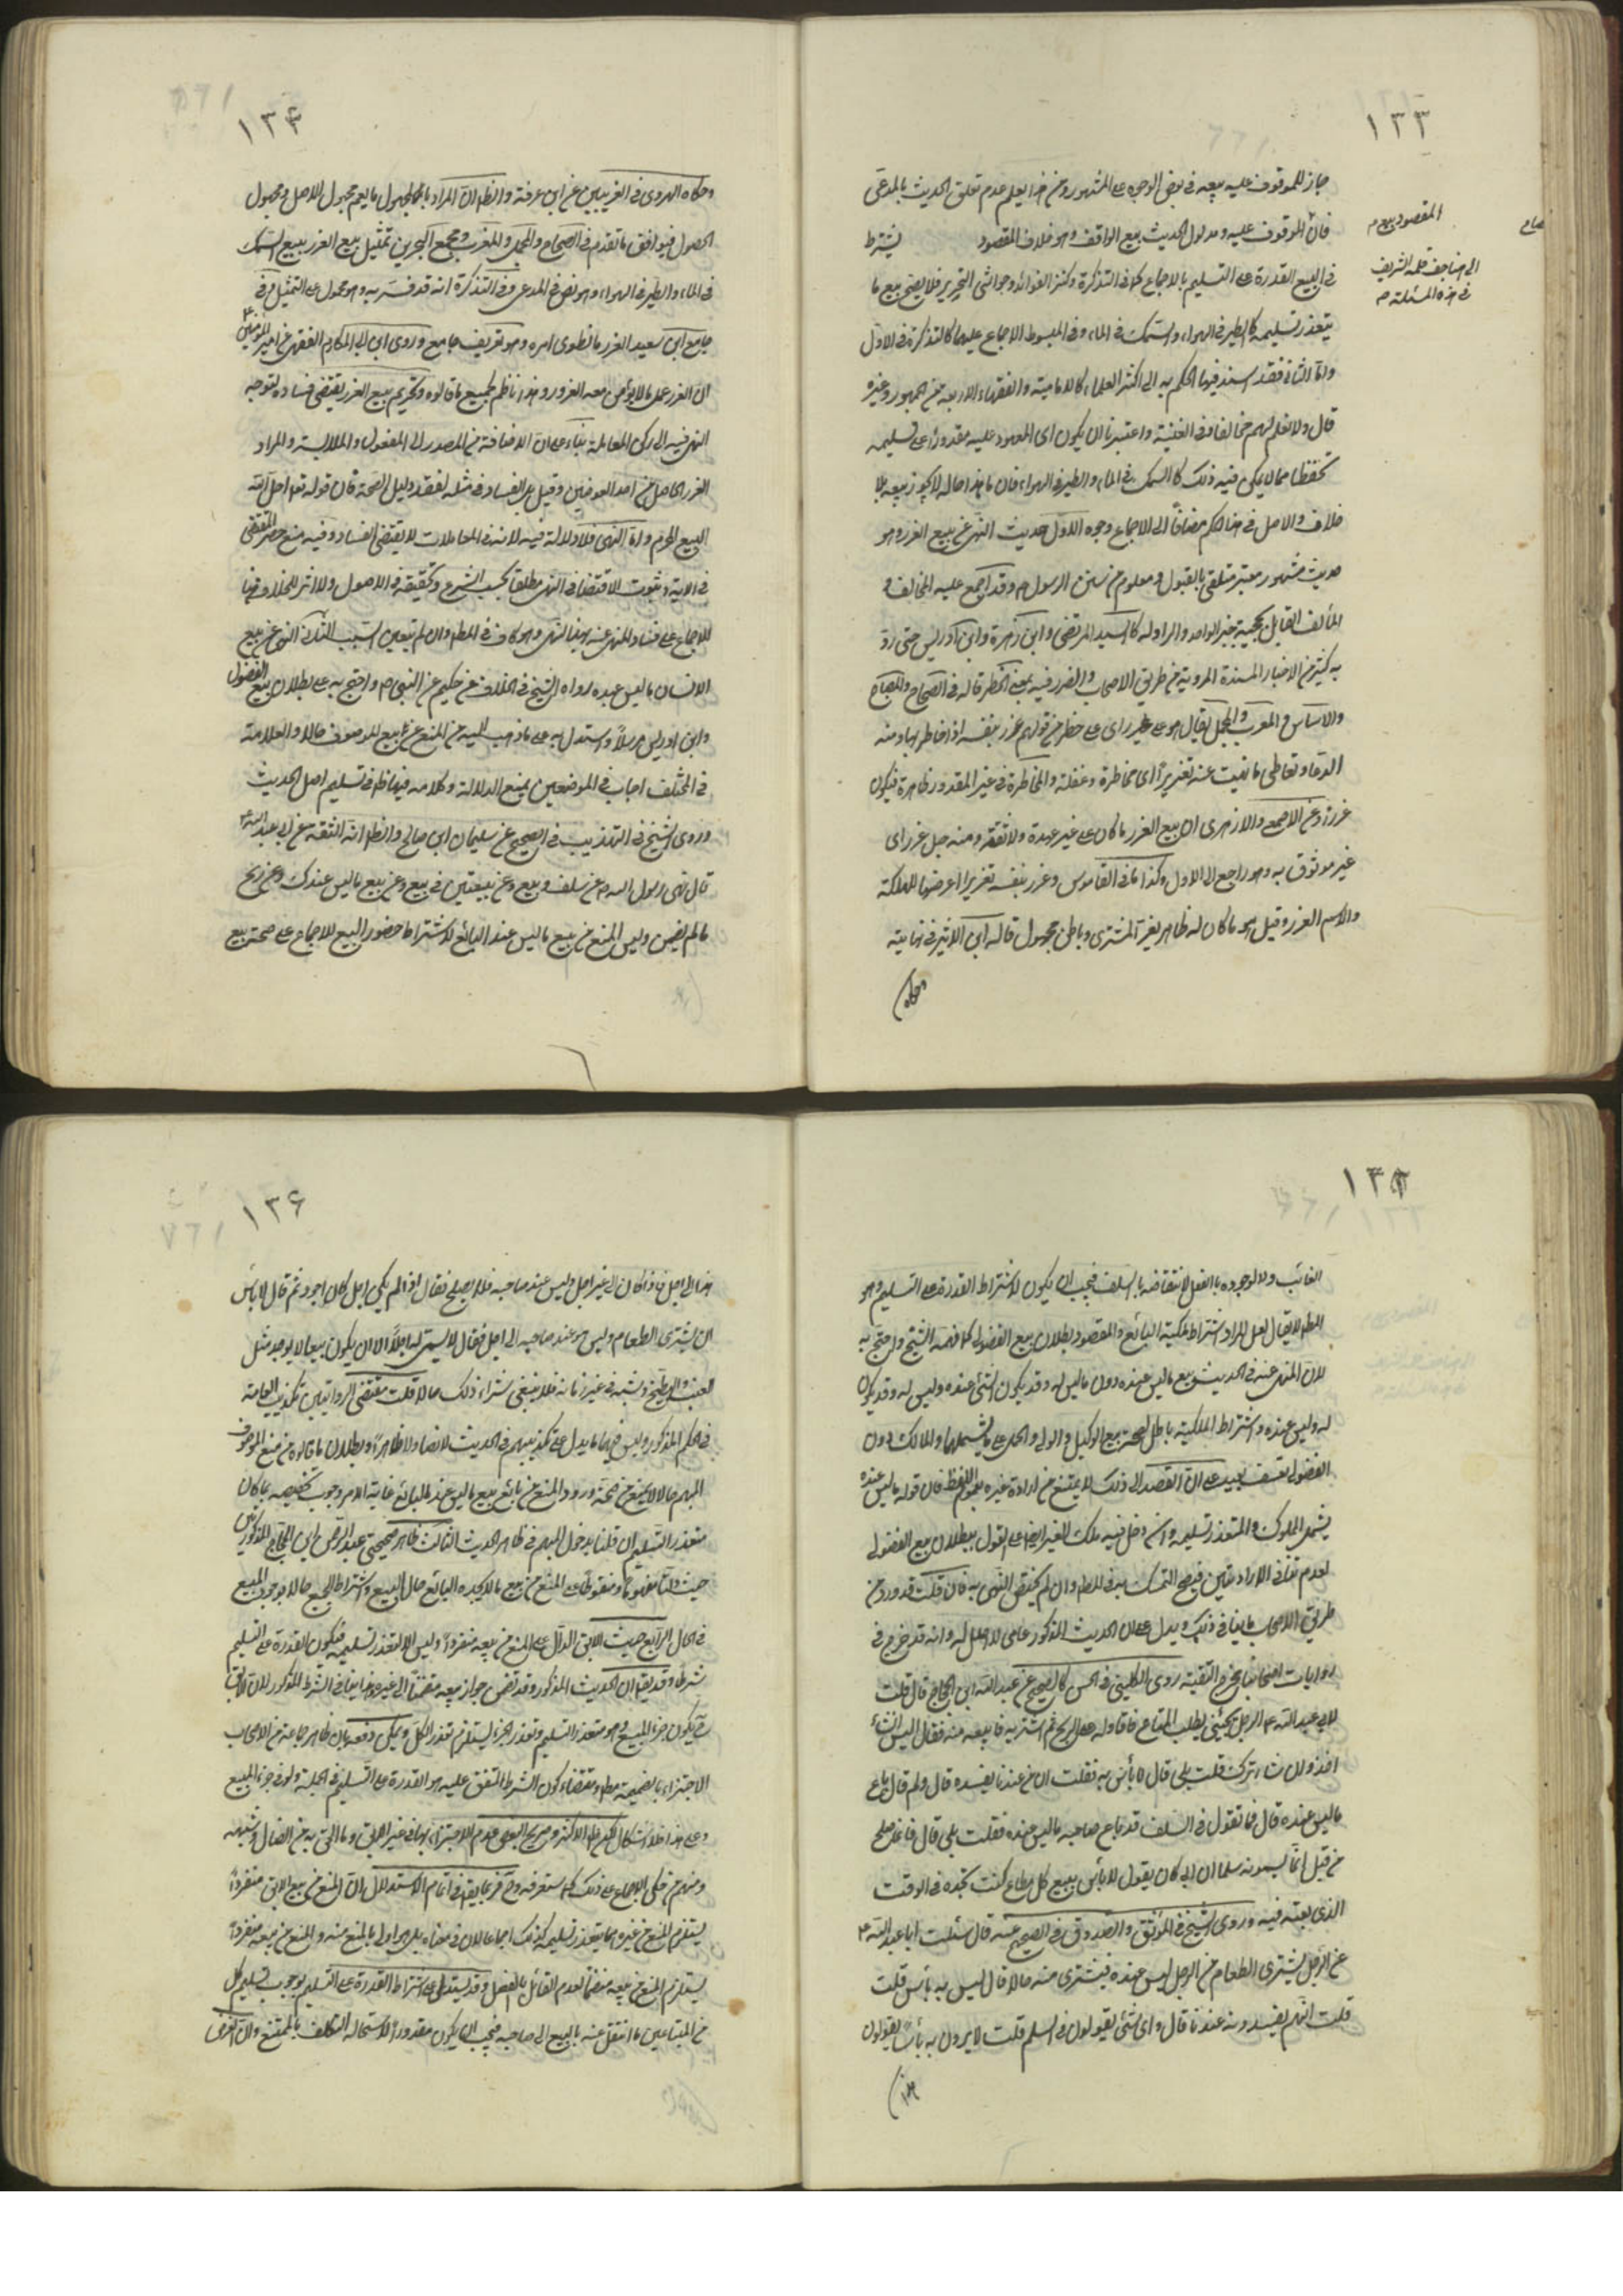 ١٣٣
جاز للموقوف عليه بيعه في بعض الوجوه على المشهور ومن هذا يعلم عدم تعلق الحديث بالمدعى
فان الموقوف عليه ومدلول الحديث بيع الواقف وهو خلاف المقصود يشترط
المقصود بيع م
الى هنا جف قلمه الشريف
في هذه المسئلة م
في البيع القدرة على التسليم بالاجماع كما في التذكرة وكنز الفوائد وحواشي التحرير فلا يصح بيع ما
يتعذر تسليمه كالطير في الهواء والسمك في الماء وفي المبسوط الاجماع عليهما كالتذكرة في الاول
واما الثاني فقد اسند فيها الحكم به الى اكثر العلماء كالامامية والفقهاء الاربعة من الجمهور وغيره
قال ولا نعلم لهم مخالفا وفي الغنية واعتبرنا ان يكون اي المعقود عليه مقدورا على تسليمه
تحفظا مما لا يمكن فيه ذلك كالسمك في الماء والطير في الهواء فان ما هذا حاله لا يجوز بيعه بلا
خلاف والاصل في هذا الحكم مضافا الى الاجماع وجوه الاول حديث النهي عن بيع الغرر وهو
حديث مشهور معتبر متلقى بالقبول ومعلوم من سنن الرسول ص وقد اجمع عليه المخالف و
المألف القايل بحجية خبر الواحد والراد له كالسيد المرتضى وابن زهرة وابن ادريس حتى رد
به كثير من الاخبار المسندة المروية من طريق الاصحاب والغرر فيه بمعنى الخطر قاله في الصحاح والمصباح
والاساس والمغرب والمجمل يقال هو على غرر اي على خطر من قولهم غرر بنفسه اذا خاطر بها ومنه
الدعاء وتعاطي ما نهيت عنه تغريرا اي مخاطرة وغفلة والمخاطرة في غير المقدور ظاهرة فيكون
غررا وعن الاصمعي والازهري ان بيع الغرر ما كان على غير عهدة ولا ثقة ومنه حبل غرر اي
غير موثوق به وهو راجع الى الاول وكذا ما في القاموس وغرر بنفسه تغريرا عرضها للهلكة
والاسم الغرر وقيل هو ما كان له ظاهر يغر المشترى وباطن مجهول قاله ابن الاثير في نهايته
وحكاه
١٣٤
وحكاه الهروي في الغريبين عن ابن عرفة والظ ان المراد بالمجهول ما يعم مجهول الاصل ومجهول
الحصول فيوافق ما تقدم في الصحاح والمجمل والمغرب ومجمع البحرين تمثيل بيع الغرر ببيع السمك
في الماء والطير في الهواء وهو نص في المدعى وفي التذكرة انه قد فسر به وهو محمول على التمثيل وفي
جامع ابن سعيد الغرر ما انطوى امره وهو تعريف جامع وروى ابن ابي المكارم الفقهي عن امير المؤمنين ع
ان الغرر عمل ما لا يؤمن معه الغرور وهذا ناظم لجميع ما قالوه وتحريم بيع الغرر يقتضي فساده لتوجه
النهي فيه الى ركن المعاملة بناء على ان الاضافة من المصدر الى المفعول والملابسة والمراد
الغرر الحاصل من احد العوضين وقيل بل الفساد في مثله لفقد دليل الصحة فان قوله تعالى احل الله
البيع المحرم واما النهي فلا دلالة فيه لانه في المعاملات لا يقتضي الفساد وفيه منع حصر المقتضي
في الاية وثبوت الاقتضاء في النهي مطلقا بحسب الشرع وتحقيقه في الاصول ولا اثر للخلاف هنا
للاجماع على فساد المنهي عنه بهذا النهي وهو كاف في المطلوب وان لم يتعين السبب الثاني النهي عن بيع
الانسان ما ليس عنده رواه الشيخ في الخلاف عن حكيم عن النبي ص واحتج به على بطلان بيع الفضول
وابن ادريس مرسلا واستدل به على ما ذهب اليه من المنع عن بيع الموصوف حالا والعلامة
في المختلف اجاب في الموضعين بمنع الدلالة وكلامه فيها ظ في تسليم اصل الحديث
وروى الشيخ في التهذيب في الصحيح عن سليمان ابن صالح والظ انه الثقة عن ابي عبد الله ع
قال نهى رسول الله ص عن سلف وبيع وعن بيعتين في بيع وعن بيع ما ليس عندك وعن ربح
ما لم يضمن وليس المنع من بيع ما ليس عند البائع لاشتراط حضور المبيع للاجماع على صحة بيع
١٣٥
الغائب ولا لوجوده بالفعل لانتقاضه بالسلف فيجب ان يكون لاشتراط القدرة على التسليم وهو
المطلوب لا يقال لعل المراد اشتراط ملكية البائع والمقصود بطلان بيع الفضولي كما فهمه الشيخ واحتج به
لان المنهي عنه في الحديث بيع ما ليس عنده دون ما ليس له وقد يكون الشيء عنده وليس له وقد يكون
له وليس عنده واشتراط الملكية باطل لصحة بيع الوكيل والولي والحمل على ما يشملهما والمالك دون
الفضولي تعسف بعيد على ان القصد الى ذلك لا يمتنع من ارادة غيره بعموم اللفظ فان قوله ما ليس عنده
يشمل المملوك والمتعذر تسليمه وان دخل فيه ملك الغير ايضا على القول ببطلان بيع الفضولي
لعدم تنافي الارادتين فيصح التمسك به في المطلوب وان لم يختص النهي به فان قلت قد ورد من
طريق الاصحاب ما ينافي ذلك ويدل على ان الحديث المذكور عامي لا اصل له وانه قد خرج في
روايات اصحابنا مخرج التقية روى الكليني في الحسن كالصحيح عن عبد الرحمن ابن الحجاج قال قلت
لابي عبد الله ع الرجل يجيئني يطلب المتاع فاقاوله على الربح ثم اشتريه فابيعه منه فقال اليس ان شاء
اخذ وان شاء ترك قلت بلى قال لا بأس به فقلت ان من عندنا يفسده قال ولم قال باع
ما ليس عنده قال فما تقول في السلف قد باع صاحبه ما ليس عنده فقلت بلى قال فانما صلح
من قبل انما يسمونه سلما ان ابي كان يقول لا بأس ببيع كل متاع كنت تجده في الوقت
الذي بعته فيه وروى الشيخ في الموثق والصدوق في الصحيح عنه قال سئلت ابا عبد الله ع
عن الرجل يشترى الطعام من الرجل ليس عنده فيشترى منه حالا قال ليس به بأس قلت
قلت انهم يفسدونه عندنا قال واي شيء يقولون في السلم قلت لا يرون به بأسا يقولون
هذا
١٣٦
هذا الى اجل فاذا كان الى غير اجل وليس عند صاحبه فلا يصلح فقال اذا لم يكن اجل كان اجود ثم قال لا بأس
ان يشترى الطعام وليس هو عند صاحبه الى اجل فقال لا يسمى له اجلا الا ان يكون بيعا لا يوجد مثل
العنب والبطيخ وشبهه في غير زمانه فلا ينبغي شراء ذلك حالا قلت مقتضى الروايتين تكذيب العامة
في الحكم المذكور وليس فيهما ما يدل على تكذيبهم في الحديث لا نصا ولا ظاهرا وبطلان ما قالوه من منع الموصوف
المبهم حالا لا يمنع من صحة ورود المنع من بيع ما ليس عند البائع غاية الامر وجوب تخصيصه بما كان
متعذر التسليم ان قلنا بدخول المبهم في ظاهر الحديث الثالث ظاهر صحيحتي عبد الرحمن ابن الحجاج المذكورتين
حيث دلتا مفهوما ومنطوقا على المنع من بيع ما لا يجده البائع حال البيع واشتراط البيع حالا بوجود المبيع
في الحال الرابع حديث الابق الدال على المنع من بيعه منفردا وليس الا لتعذر تسليمه فيكون القدرة على التسليم
شرطا وقد يقال ان الحديث المذكور قد تضمن جواز بيعه منضما الى غيره وهذا ينافي الشرط المذكور لان الابق
ح يكون جزء المبيع وهو متعذر التسليم وتعذر الجزء يستلزم تعذر الكل ويمكن دفعه بان ظاهر جماعة من الاصحاب
الاجتزاء بالضميمة مطلقا ومقتضاه كون الشرط المتفق عليه هو القدرة على التسليم في الجملة ولو في جزء المبيع
وعلى هذا فلا اشكال لكن ظاهر الاكثر وصريح البعض عدم الاجتزاء بها في غير الابق وما الحق به من الضال وشبهه
ومنهم من حكى الاجماع على ذلك كما ستعرفه وح فربما يقال في اتمام الاستدلال ان المنع من بيع الابق منفردا
يستلزم المنع من غيره مما يتعذر تسليمه كذلك اجماعا لانه في معناه بل هو اولى بالمنع منه والمنع من بيعه منفردا
يستلزم المنع من بيعه منضما لعدم القائل بالفصل وقد يستدل على اشتراط القدرة على التسليم بوجوب تسليم كل
من المتبايعين ما انتقل عنه بالبيع الى صاحبه فيجب ان يكون مقدورا لاستحالة التكليف بالممتنع وان الغرض